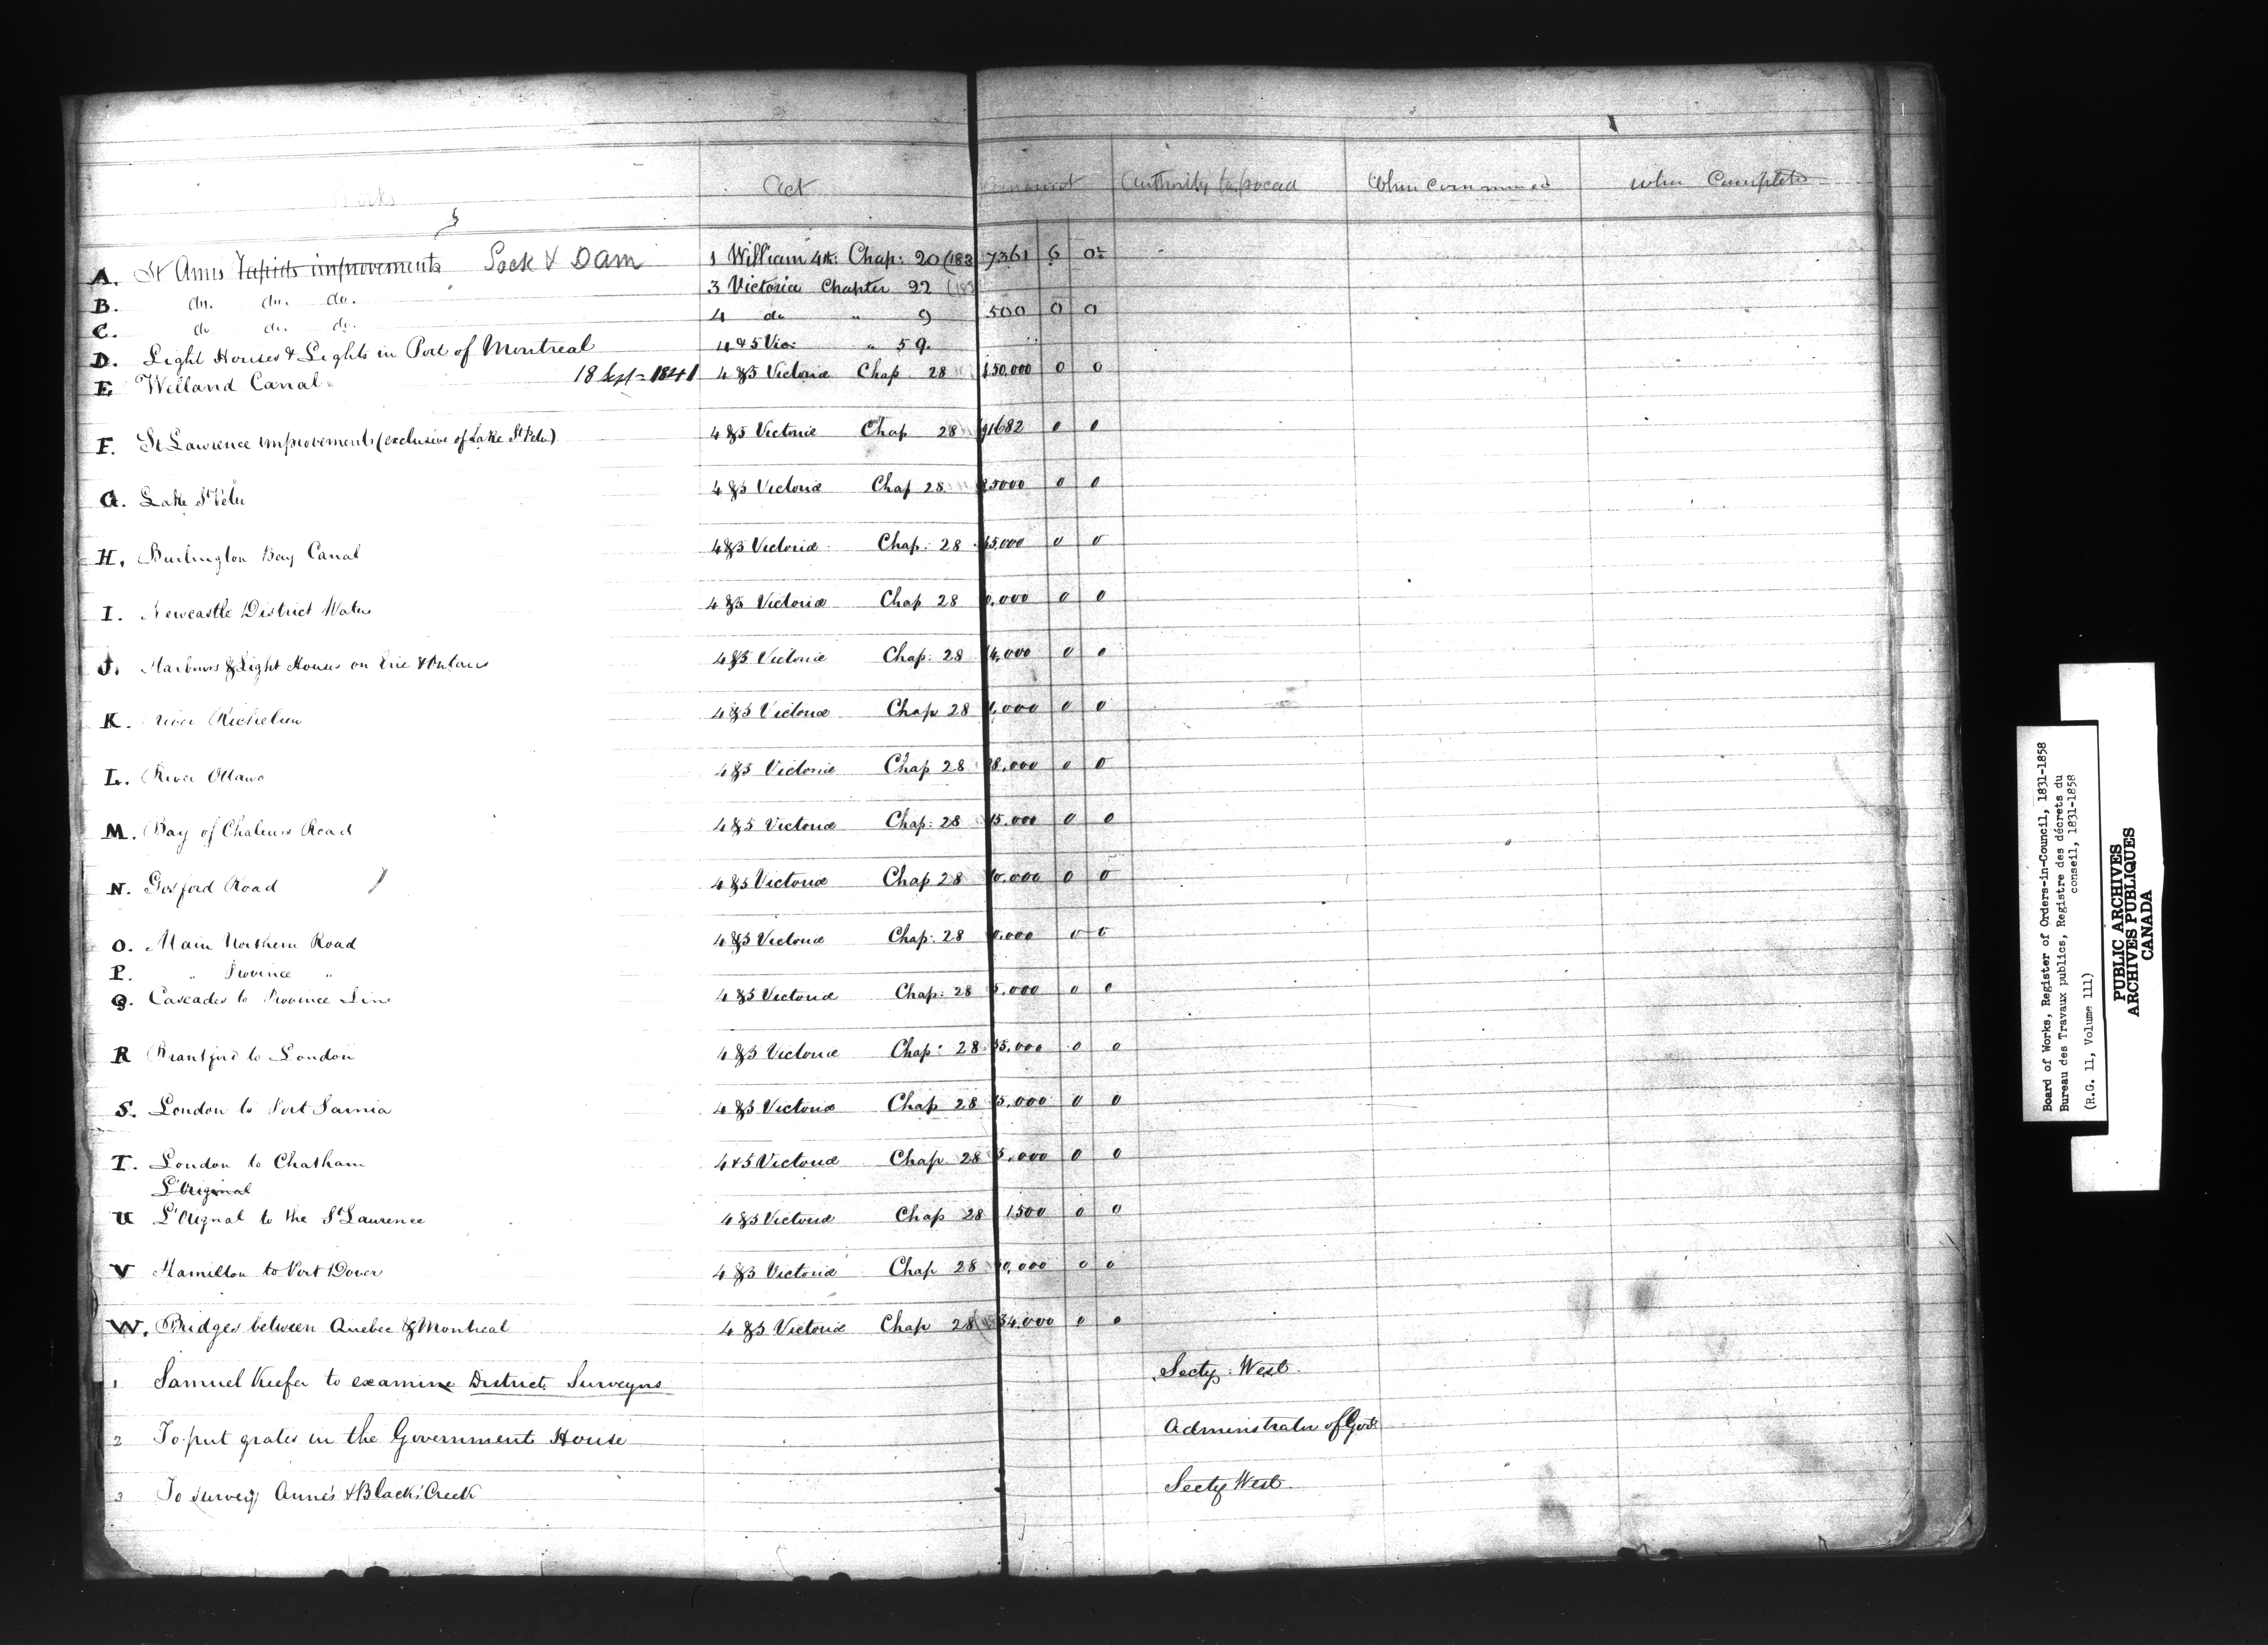 Works Act Amount Authority When commenced When Completed
A. St Anns Rapids improvements Lock & Dam 1 William 4th: Chap: 20 (183 7361 6 0
B. do. do. do. 3 Victoria Chapter 22 (183
C. do do. do. 4 do " 9 500 0 0
D. Light Houses & Lights in Port of Montreal 4 & 5 Vic: " 59.
E. Welland Canal 18 Sept = 1841 4 & 5 Victoria Chap 28 150,000 0 0
F. St Lawrence improvements (exclusive of Lake St Peter) 4 & 5 Victoria Chap 28 91682 0 0
G. Lake St Peter 4 & 5 Victoria Chap 28 5000 0 0
H. Burlington Bay Canal 4 & 5 Victoria Chap: 28 5,000 0 0
I. Newcastle District Waters 4 & 5 Victoria Chap 28 0,000 0 0
J. Harbours & Light Houses on Erie & Ontario 4 & 5 Victoria Chap: 28 4,000 0 0
K. River Richelieu 4 & 5 Victoria Chap 28 ,000 0 0
L. River Ottawa 4 & 5 Victoria Chap 28 8,000 0 0
M. Bay of Chaleurs Road 4 & 5 Victoria Chap: 28 15,000 0 0
N. Gosford Road 4 & 5 Victoria Chap 28 0,000 0 0
O. Main Northern Road 4 & 5 Victoria Chap: 28 0,000 0 0
P. " Province "
Q. Cascades to Province Line 4 & 5 Victoria Chap: 28 5,000 0 0
R Brantford to London 4 & 5 Victoria Chap: 28 55,000 0 0
S. London to Port Sarnia 4 & 5 Victoria Chap 28 15,000 0 0
T. London to Chatham 4 & 5 Victoria Chap. 28 5,000 0 0
L'Original
U L'Orignal to the St Laurence 4 & 5 Victoria Chap 28 1,500 0 0
V Hamilton to Port Dover 4 & 5 Victoria Chap 28 0,000 0 0
W. Bridges between Quebec & Montreal 4 & 5 Victoria Chap 28 34,000 0 0
1 Samuel Keefer to examine District Surveyors Secty: West.
2 To put grates in the Government House Administrator of Govt
3 To survey Anne's & Black's Creek Secty West.
Board of Works, Register of Orders-in-Council, 1831-1858
Bureau des Travaux publics, Registre des décrets du
conseil, 1831-1858
(R.G. 11, Volume 111)
PUBLIC ARCHIVES
ARCHIVES PUBLIQUES
CANADA